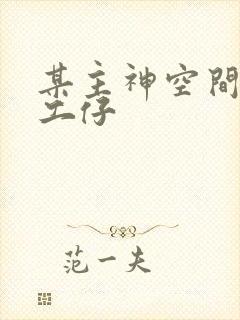 某主神空間
工仔
范一夫